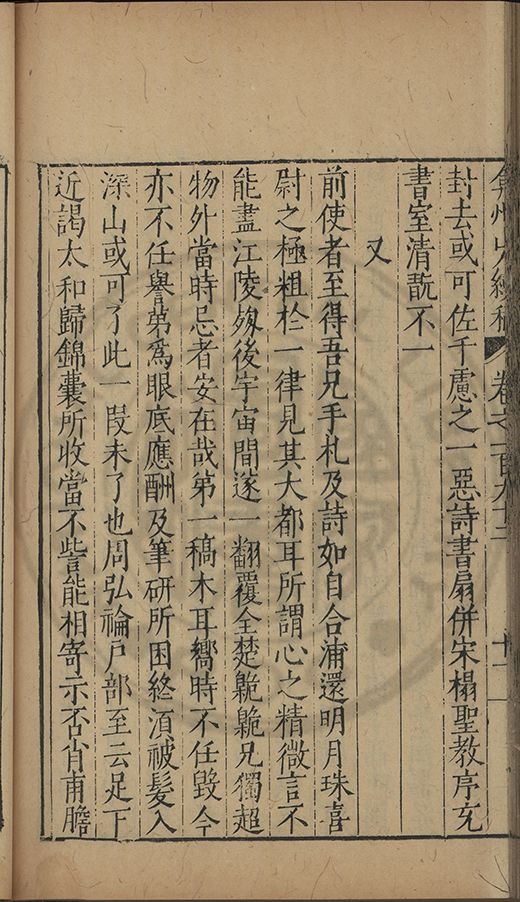 弇州山人續稿 卷之一百九十二 十一
封去或可佐千慮之一惡詩書扇併宋榻聖教序充
書室清翫不一
又
前使者至得吾兄手札及詩如自合浦還明月珠喜
尉之極粗於一律見其大都耳所謂心之精微言不
能盡江陵歿後宇宙間遂一翻覆全楚臲臲兄獨超
物外當時忌者安在哉弟一稿木耳嚮時不任毀今
亦不任譽弟爲眼底應酬及筆研所困終湏被髮入
深山或可了此一叚未了也周弘禴戶部至云足下
近謁太和歸錦囊所收當不訾能相寄示否肖甫膽